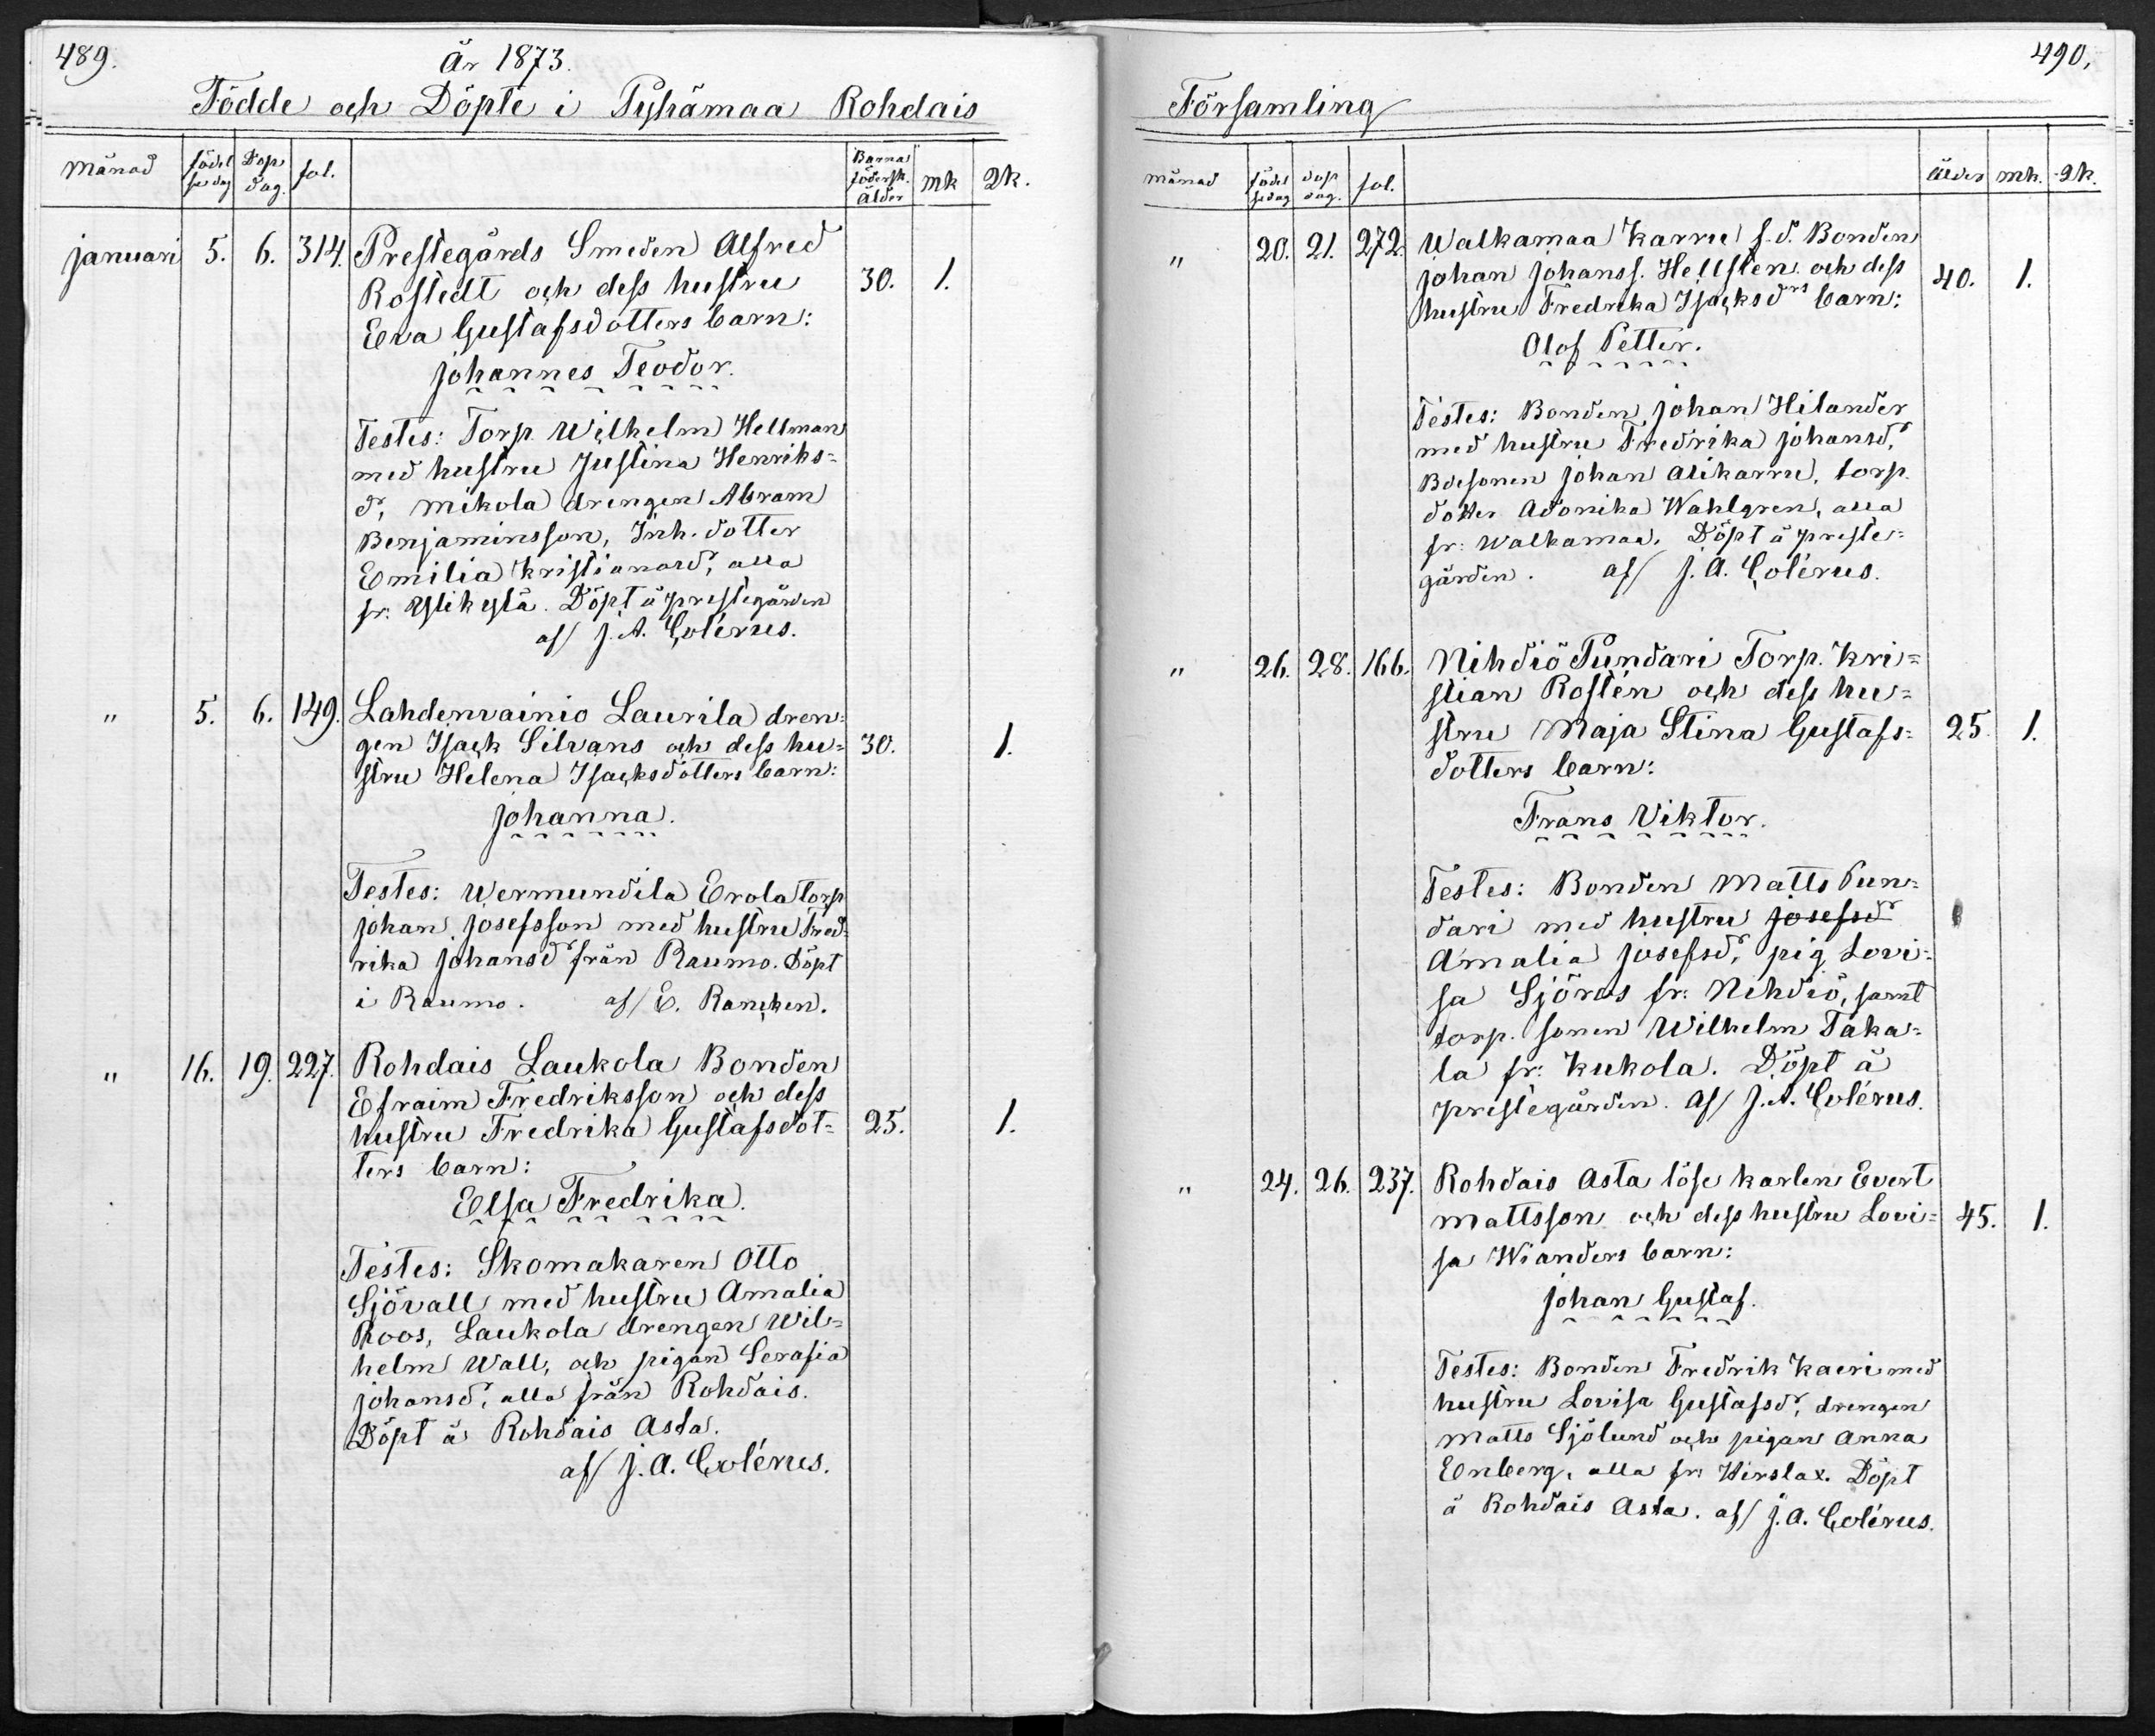 489.
År 1873.
Födde och Döpte i Pyhämaa Rohdais
månad födelsedag Dop dag. fol. Barna födersk. Ålder mk qk.
januari 5. 6. 314. Prestegårds Smeden Alfred
Rostedt och dess hustru 30. 1.
Eva Gustafsdotters barn:
Johannes Teodor.
Testes: Torp. Wilhelm Hellman
med hustru Justina Henriks=
dr, Mikola drengen Abram
Benjaminsson, Inh. dotter
Emilia Kristiansdr, alla
fr: Ylikylä. Döpt å prestegården
af/ J. A. Colérus.
" 5. 6. 149. Lahdenvainio Laurila dren=
gen Isack Silvans och dess hu= 30. 1.
stru Helena Isacksdotters barn:
Johanna.
Testes: Wermundila Erola torp
Johan Josefsson med hustru Fred=
rika Johansdr från Raumo. Döpt
i Raumo. af/ E. Rancken.
" 16. 19. 227. Rohdais Laukola Bonden
Efraim Fredriksson och dess
hustru Fredrika Gustafsdot= 25. 1.
ters barn:
Elsa Fredrika.
Testes: Skomakaren Otto
Sjövall med hustru Amalia
Roos, Laukola drengen Wil=
helm Wall, och pigan Serafia
Johansdr, alla från Rohdais.
Döpt å Rohdais Asta.
af/ J. A. Colérus.
490.
Församling
månad födelsedag dop dag. fol. ålder mk. qk.
" 20. 21. 272. Walkamaa Karru f.d. Bonden
Johan Johanss. Hellsten och dess 40. 1.
hustru Fredrika Isacksdrs barn:
Olof Petter.
Testes: Bonden Johan Hilander
med hustru Fredrika Johansdr,
Bdesonen Johan Alikarru, torp.
dotter Adonika Wahlgren, alla
fr: Walkamaa. Döpt å preste=
gården. af/ J. A. Colérus.
" 26. 28. 166. Nihdiö Pundari Torp. Kri=
stian Rostén och dess hu=
stru Maja Stina Gustafs= 25. 1.
dotters barn:
Frans Viktor.
Testes: Bonden Matts Pun=
dari med hustru Josefsdr
Amalia Josefsdr, pig. Lovi=
sa Sjöroos fr: Nihdiö, samt
torp. sonen Wilhelm Taka=
la fr: Kukola. Döpt å
prestegården. af/ J. A. Colérus.
" 24. 26. 237. Rohdais Asta löse karlen Evert
Mattsson och dess hustru Lovi= 45. 1.
sa Wianders barn:
Johan Gustaf.
Testes: Bonden Fredrik Kaeri med
hustru Lovisa Gustafsdr, drengen
Matts Sjölund och pigan Anna
Enberg, alla fr: Hirslax. Döpt
å Rohdais Asta. af/ J. A. Colérus.